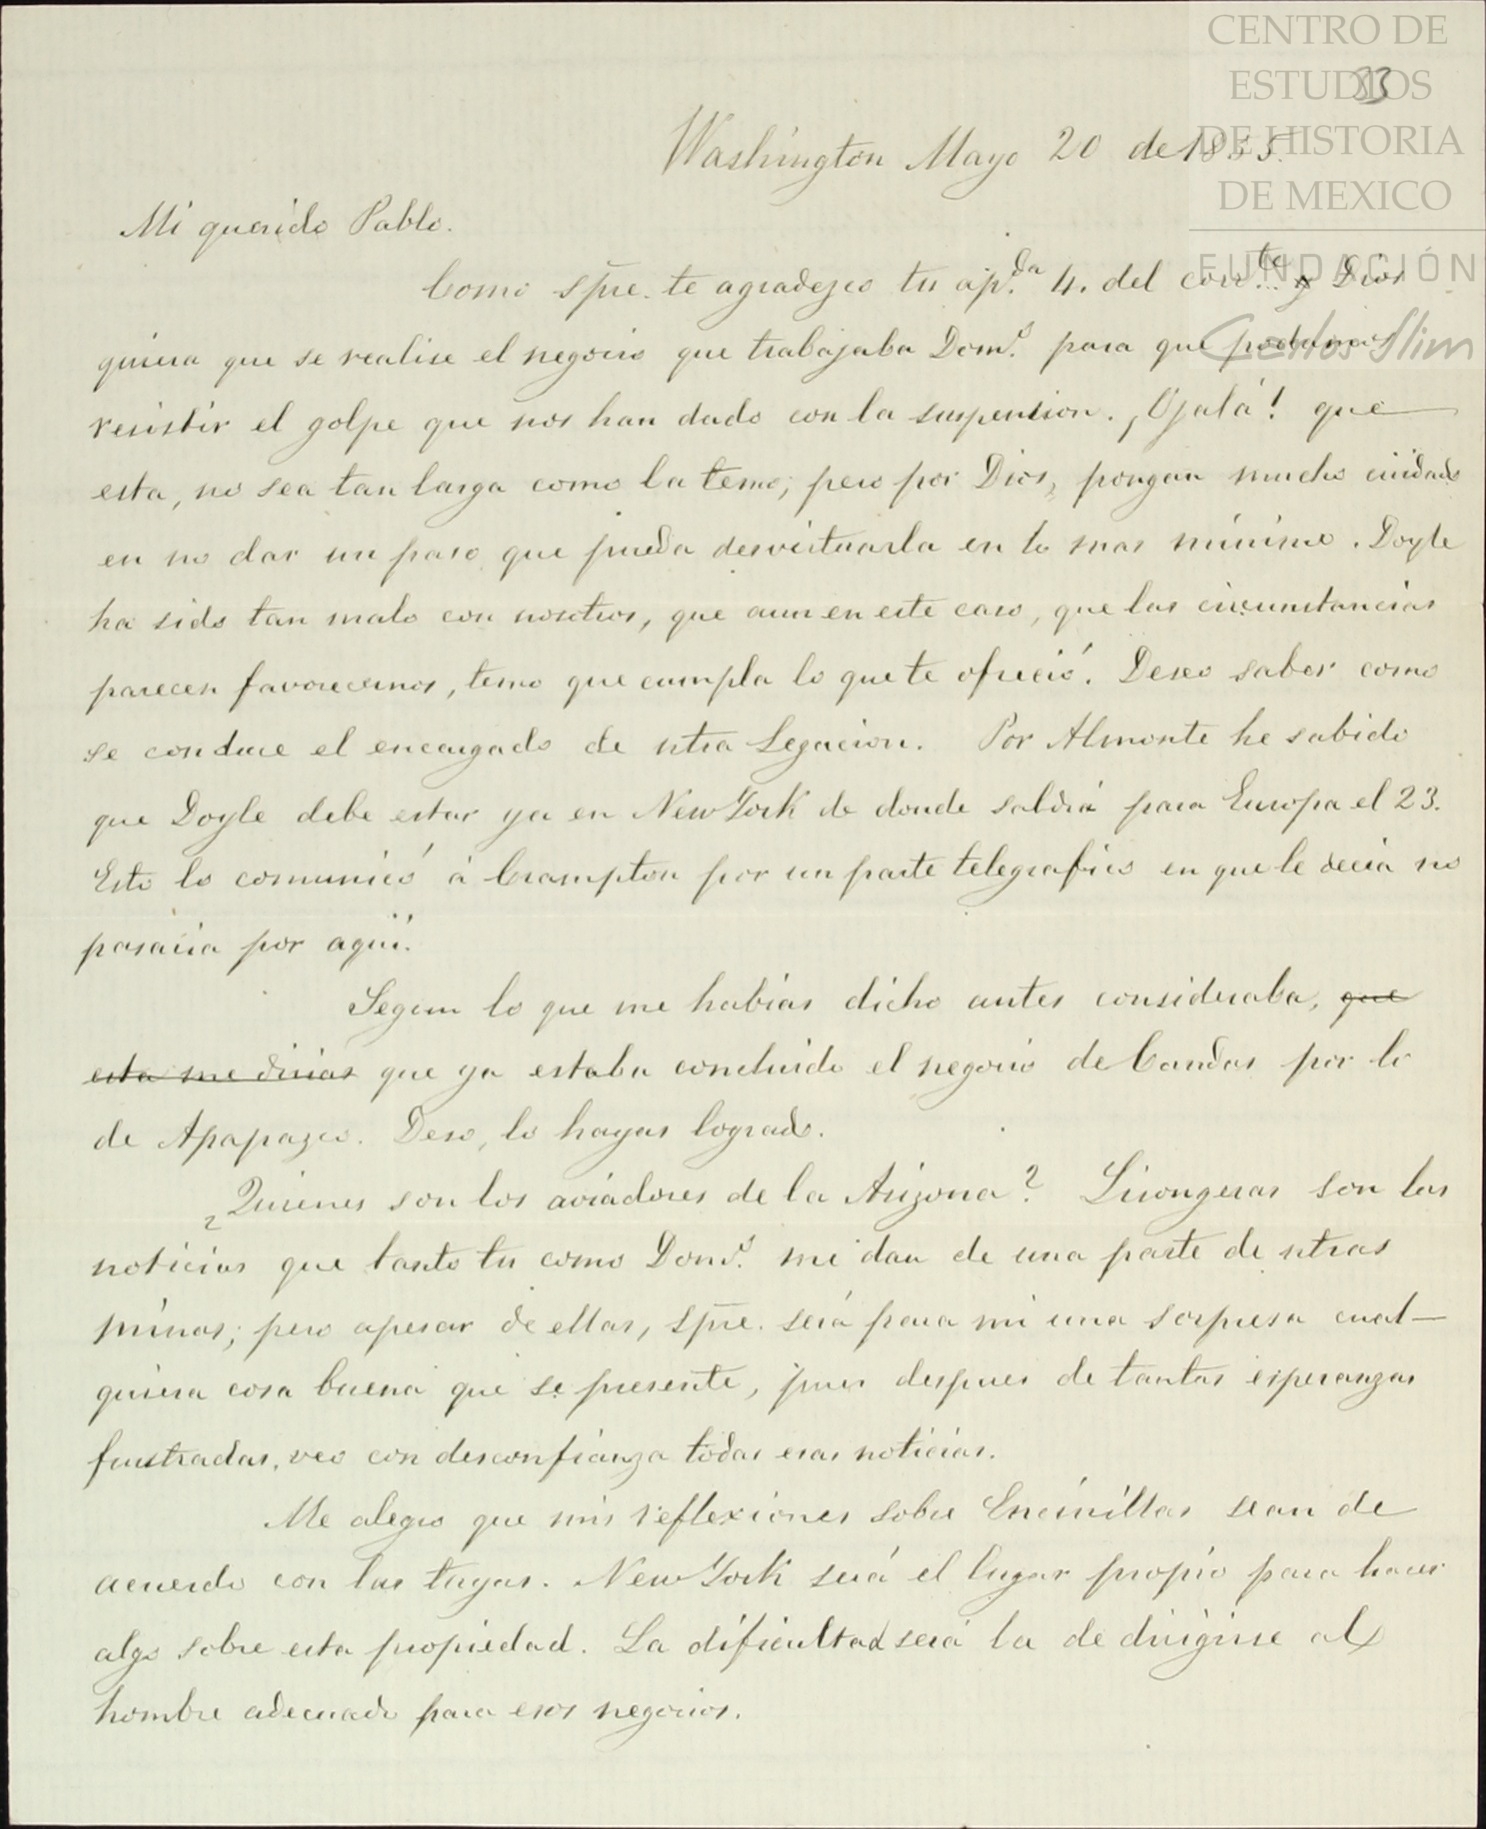 CENTRO DE
ESTUDIOS
DE HISTORIA
DE MEXICO
FUNDACIÓN
Carlos Slim
33
Washington Mayo 20 de 1855.
Mi querido Pablo.
Como spre. te agradezco tu ap.da 4. del corr.te y Dios
quiera que se realise el negocio que trabajaba Dom.s para que podamos
resistir el golpe que nos han dado con la suspension. ¡Ojalá! que
esta, no sea tan larga como la temo; pero por Dios, pongan mucho cuidado
en no dar un paso que pueda desvirtuarla en lo mas mínimo. Doyle
ha sido tan malo con nosotros, que aun en este caso, que las circunstancias
parecen favorecernos, temo que cumpla lo que te ofreció. Deseo saber como
se conduce el encargado de ntra Legacion. Por Almonte he sabido
que Doyle debe estar ya en New York de donde saldrá para Europa el 23.
Esto lo comunicó á Crampton por un parte telegrafico en que le decia no
pasaria por aquí.
Segun lo que me habias dicho antes consideraba, que
esta me dirias que ya estaba concluido el negocio de Candas por lo
de Apapazco. Deseo, lo hayas logrado.
¿Quienes son los aviadores de la Arizona? Lisongeras son las
noticias que tanto tu como Dom.s me dan de una parte de ntras
minas; pero apesar de ellas, spre. será para mi una sorpresa cual-
quiera cosa buena que se presente, pues despues de tantas esperanzas
frustradas, veo con desconfianza todas esas noticias.
Me alegro que mis reflexiones sobre Encinillas sean de
acuerdo con las tuyas. New York será el lugar propio para hacer
algo sobre esta propiedad. La dificultad será la de dirigirse al
hombre adecuado para esos negocios.